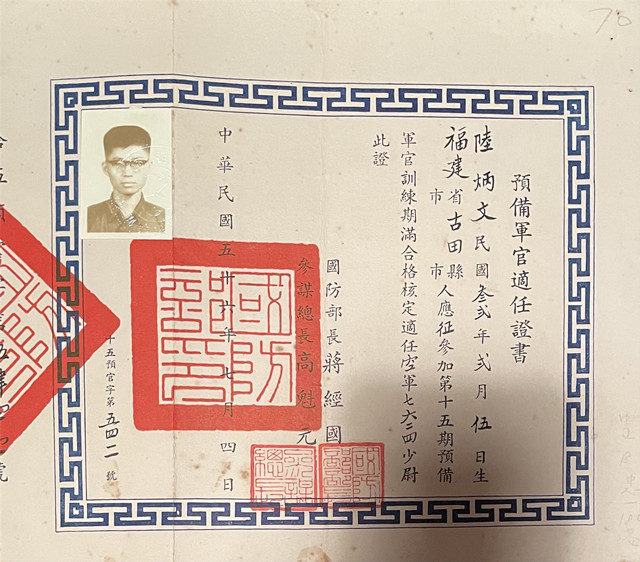 預備軍官適任證書
陸炳文民國叁弍年弍月伍日生
福建省市古田縣市人應征參加第十五期預備
軍官訓練期滿合格核定適任空軍七六二四少尉
此證
國防部長蔣經國
參謀總長高魁元
中華民國五十六年七月四日
國防部印
十五預官字第五四二號
70